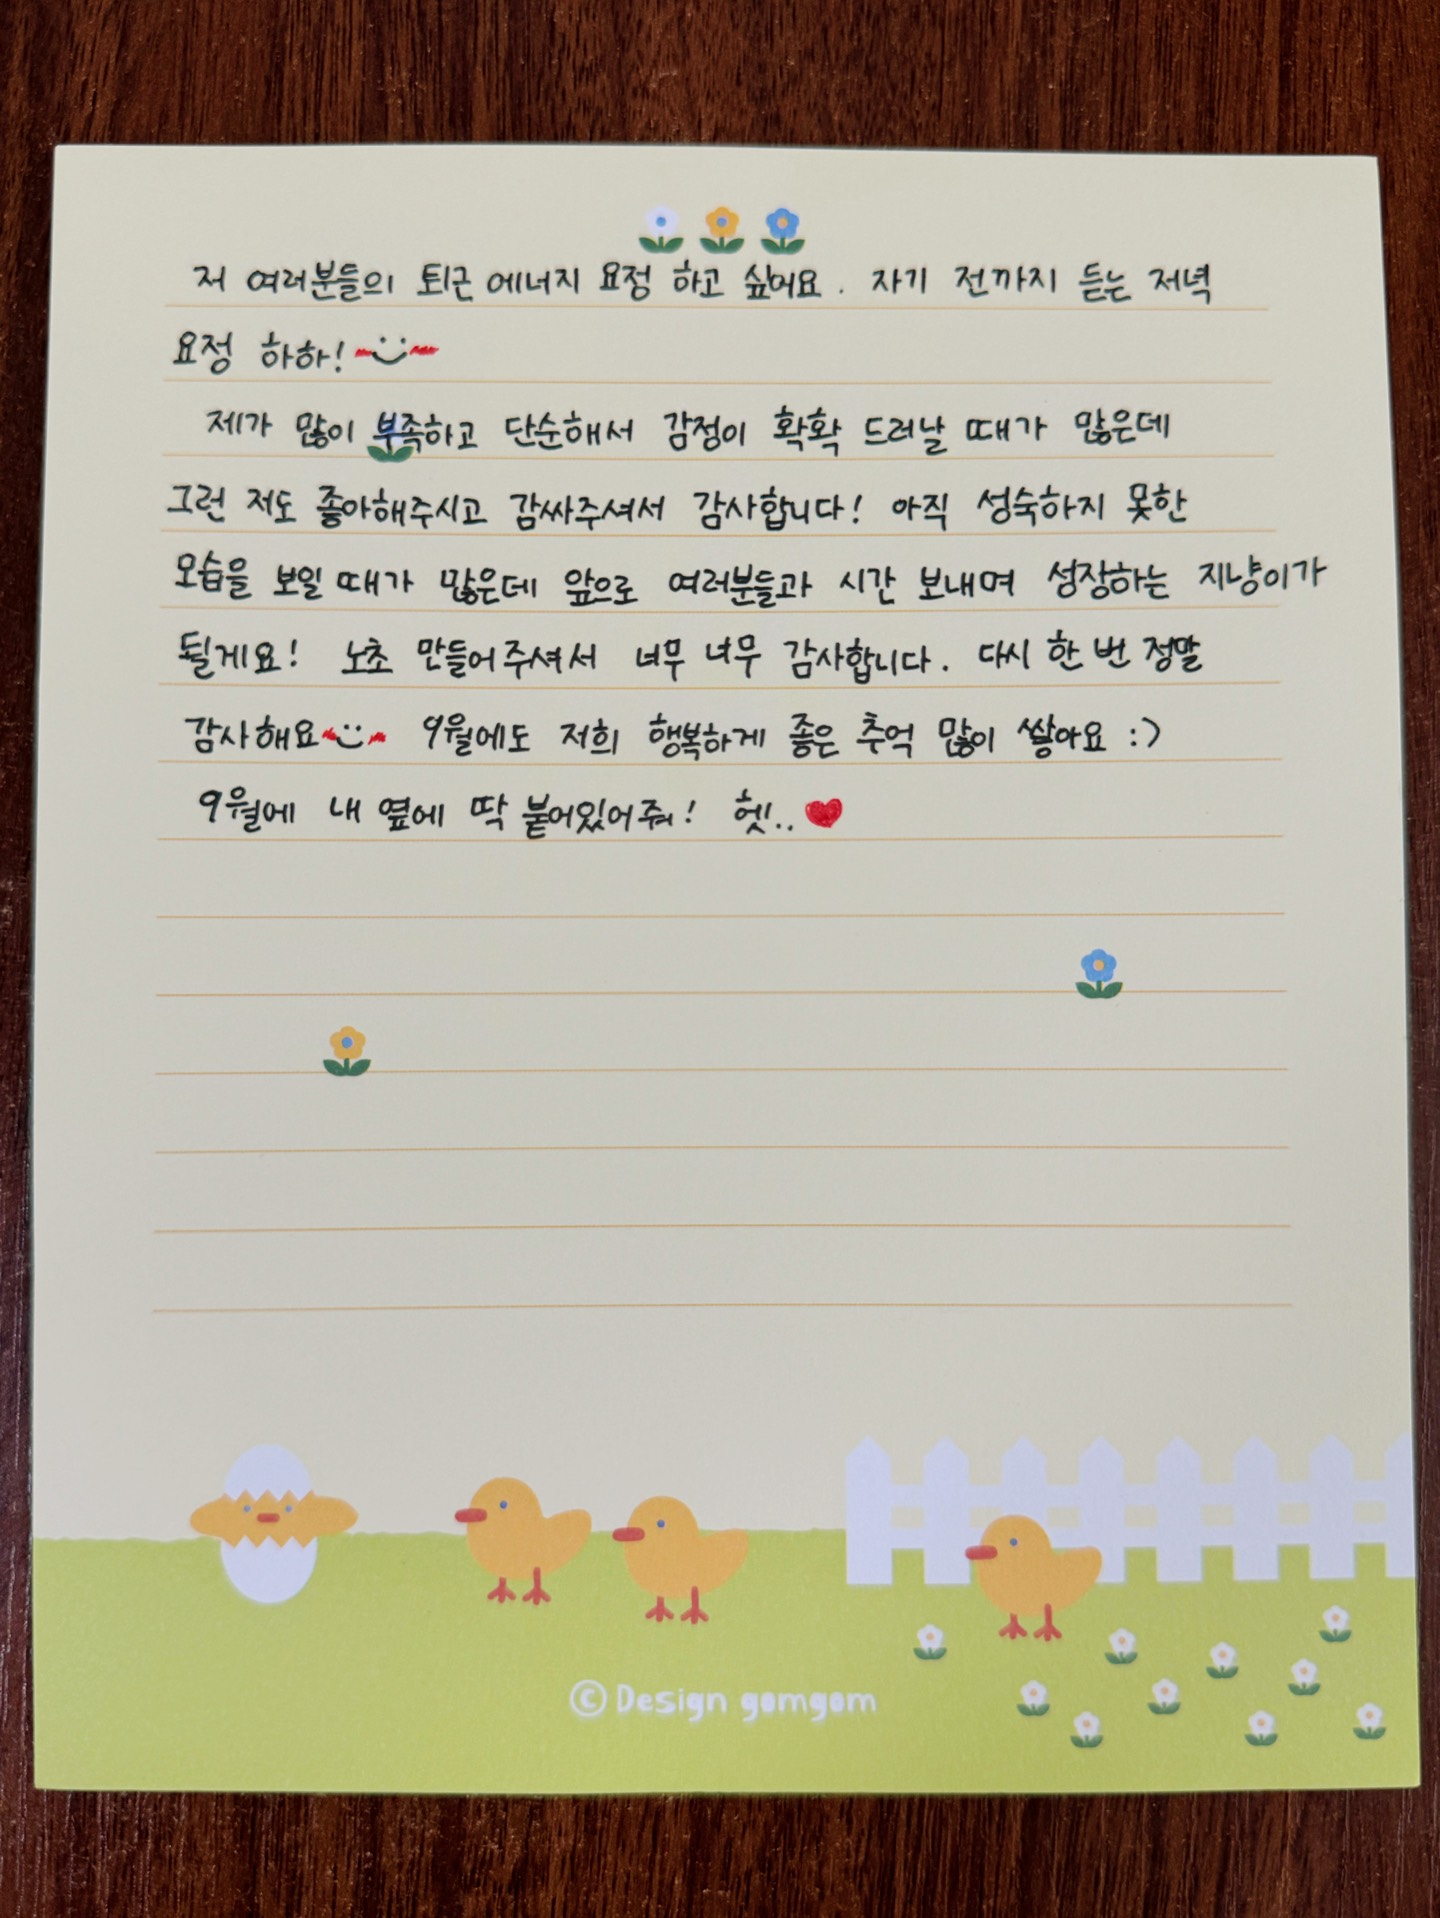 저 여러분들의 퇴근 에너지 요정 하고 싶어요. 자기 전까지 듣는 저녁
요정 하하!
제가 많이 부족하고 단순해서 감정이 확확 드러날 때가 많은데
그런 저도 좋아해주시고 감싸주셔서 감사합니다! 아직 성숙하지 못한
모습을 보일 때가 많은데 앞으로 여러분들과 시간 보내며 성장하는 지냥이가
될게요! 노초 만들어주셔서 너무 너무 감사합니다. 다시 한 번 정말
감사해요 9월에도 저희 행복하게 좋은 추억 많이 쌓아요 :)
9월에 내 옆에 딱 붙어있어줘! 헷..
© Design gomgom